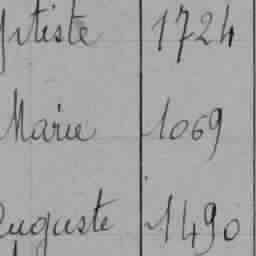 ptiste 1724
Marie 1069
Auguste 1490